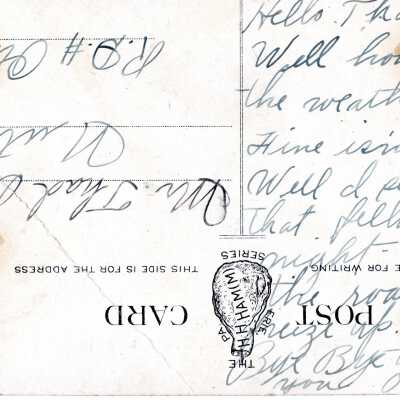 Hello Tha
Well ho
the weath
Fine isn
Well I s
that fell
might.
the roa
freeze up.
Bye Bye
you
Mr Thad
R.D.#
THIS SIDE IS FOR THE ADDRESS
E FOR WRITING
POST CARD
THE H.H.HAMM
ERIE PA
SERIES